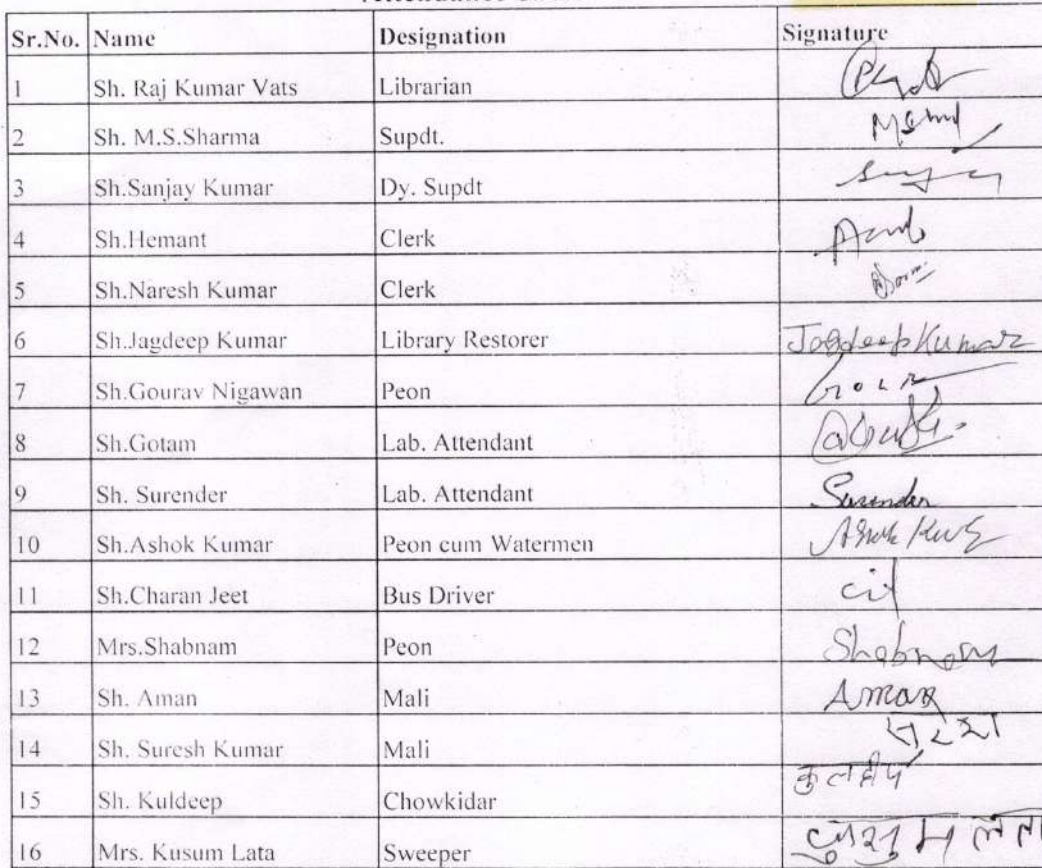 Sr.No. Name Designation Signature
1 Sh. Raj Kumar Vats Librarian
2 Sh. M.S.Sharma Supdt.
3 Sh.Sanjay Kumar Dy. Supdt
4 Sh.Hemant Clerk
5 Sh.Naresh Kumar Clerk
6 Sh.Jagdeep Kumar Library Restorer Jagdeep Kumar
7 Sh.Gourav Nigawan Peon
8 Sh.Gotam Lab. Attendant
9 Sh. Surender Lab. Attendant Surender
10 Sh.Ashok Kumar Peon cum Watermen Ashok
11 Sh.Charan Jeet Bus Driver
12 Mrs.Shabnam Peon Shabnam
13 Sh. Aman Mali Aman
14 Sh. Suresh Kumar Mali
15 Sh. Kuldeep Chowkidar कुलदीप
16 Mrs. Kusum Lata Sweeper